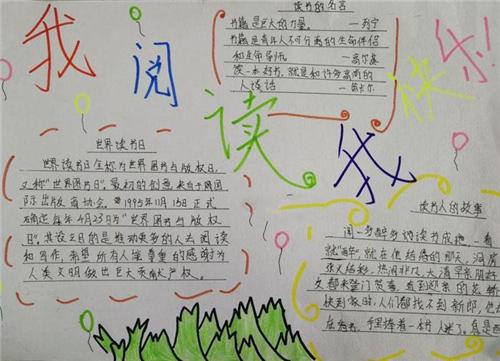 我阅读我快乐!
读书的名言
书籍是巨大的力量。 —列宁
书籍是青年人不可分离的生命伴侣
和生命导师。 —高尔基
读一本好书,就是和许多高尚的
人谈话 —笛卡尔
世界读书日
世界读书日全称为世界图书与版权日,
又称"世界图书日",最初的创意来自于国
际出版商协会。1995年11月15日正式
确定每年4月23日为"世界图书与版权
日"。其设立目的是推动更多的人去阅读
和写作,希望所有人尊重和感谢为
人类文明做出巨大贡献
产权。
读书人的故事
闻一多醉
读书成瘾,一看
就"醉",就在他结婚的那天,洞房
张灯结彩,热闹非凡。大清早亲朋
都来登门贺喜,
迎亲的花轿
快到家时,人们都找不到新郎,